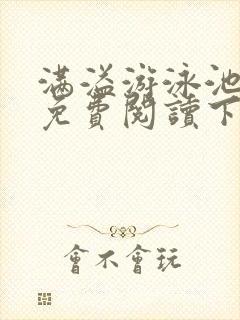 满溢游泳池
免費閱讀下
會不會玩